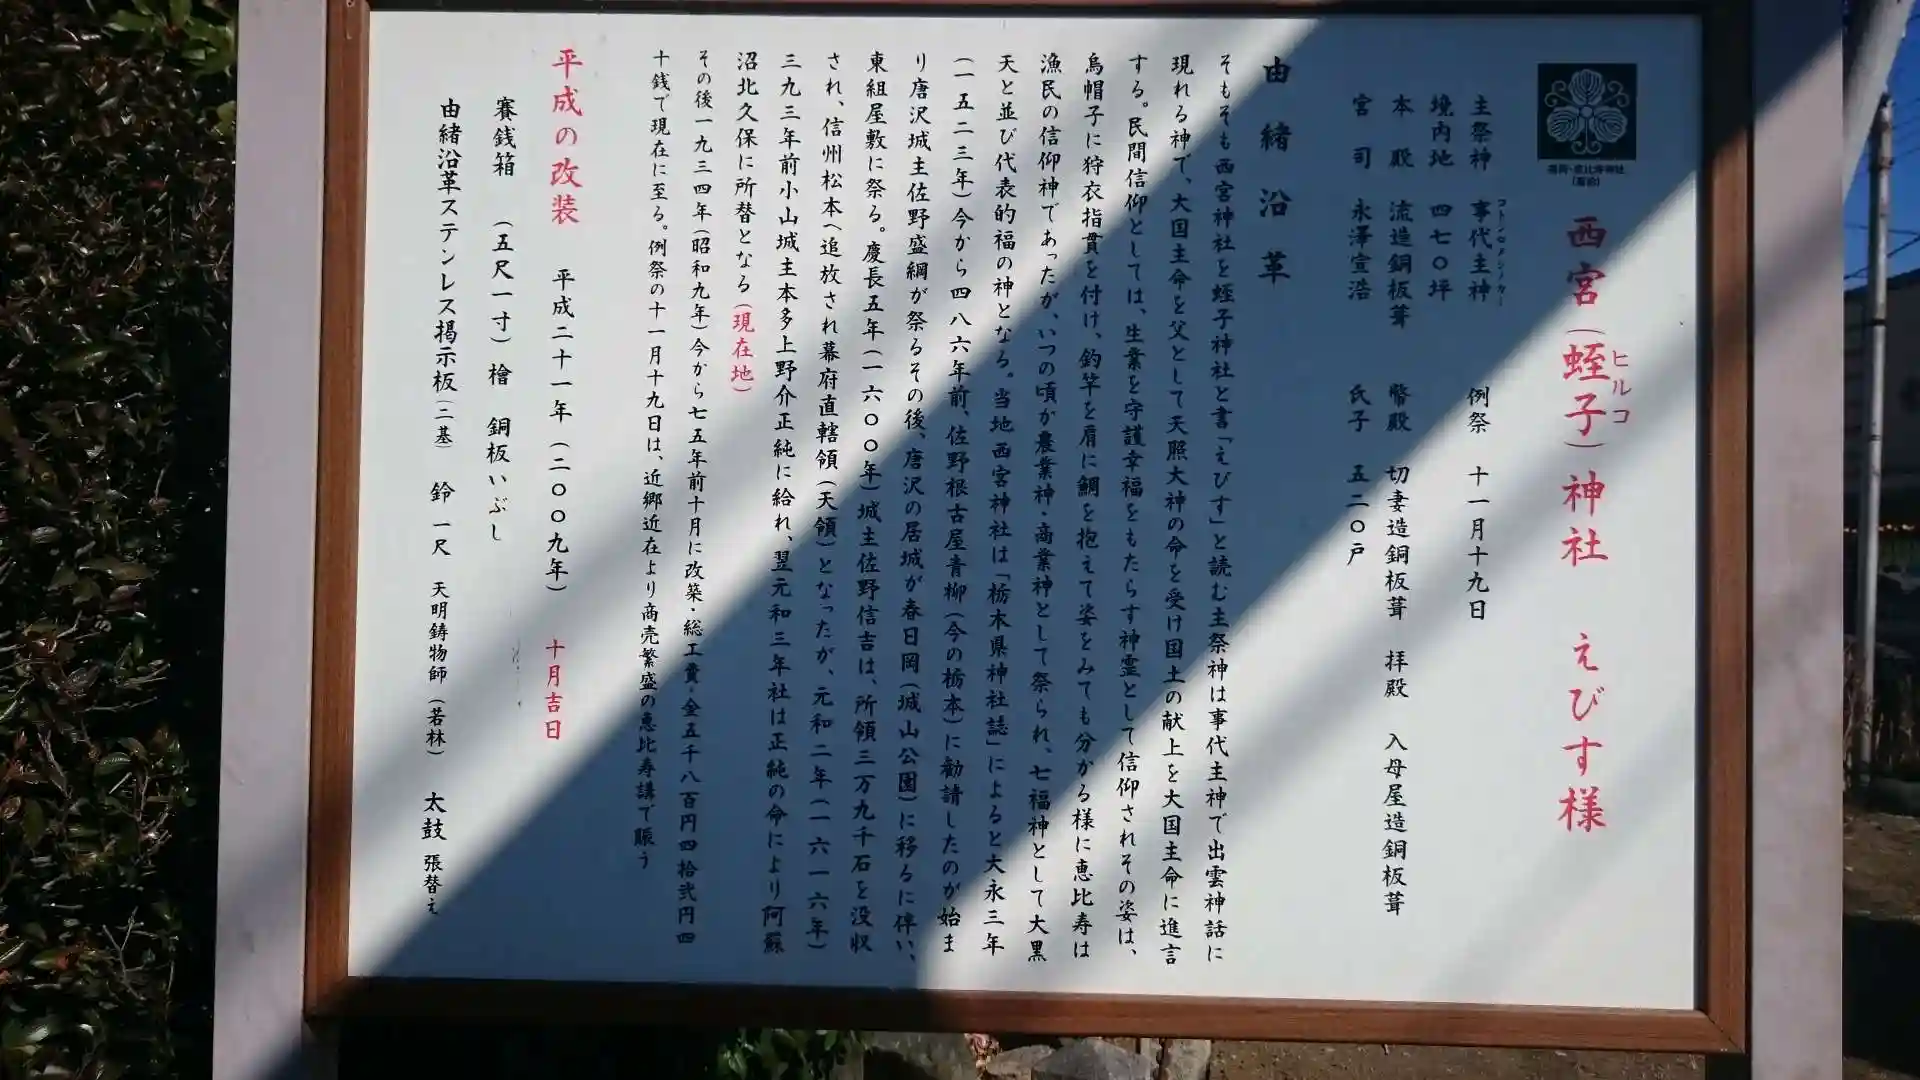 西宮（蛭子）神社　えびす様
ヒルコ
主祭神　事代主神　例祭　十一月十九日
コトシロヌシノカミ
境内地　四七〇坪
本殿　流造銅板葺　幣殿　切妻造銅板葺　拝殿　入母屋造銅板葺
宮司　永澤宣浩　氏子　五二〇戸
由緒沿革
そもそも西宮神社を蛭子神社と書「えびす」と読む主祭神は事代主神で出雲神話に
現れる神で、大国主命を父として天照大神の命を受け国土の献上を大国主命に進言
する。民間信仰としては、生業を守護幸福をもたらす神霊として信仰されその姿は、
烏帽子に狩衣指貫を付け、釣竿を肩に鯛を抱えて姿をみても分かる様に恵比寿は
漁民の信仰神であったが、いつの頃か農業神・商業神として祭られ、七福神として大黒
天と並び代表的福の神となる。当地西宮神社は「栃木県神社誌」によると大永三年
（一五二三年）今から四八六年前、佐野根古屋青柳（今の栃本）に勧請したのが始ま
り唐沢城主佐野盛綱が祭るその後、唐沢の居城が春日岡（城山公園）に移るに伴い、
東組屋敷に祭る。慶長五年（一六〇〇年）城主佐野信吉は、所領三万九千石を没収
され、信州松本へ追放され幕府直轄領（天領）となったが、元和二年（一六一六年）
三九三年前小山城主本多上野介正純に給れ、翌元和三年社は正純の命により阿蘇
沼北久保に所替となる（現在地）
その後一九三四年（昭和九年）今から七五年前十月に改築・総工費・金五千八百円四拾弐円四
十銭で現在に至る。例祭の十一月十九日は、近郷近在より商売繁盛の恵比寿講で賑う
平成の改装　平成二十一年（二〇〇九年）　十月吉日
賽銭箱　（五尺一寸）檜　銅板いぶし
由緒沿革ステンレス掲示板（二基）　鈴　一尺　天明鋳物師（若林）　太鼓　張替え